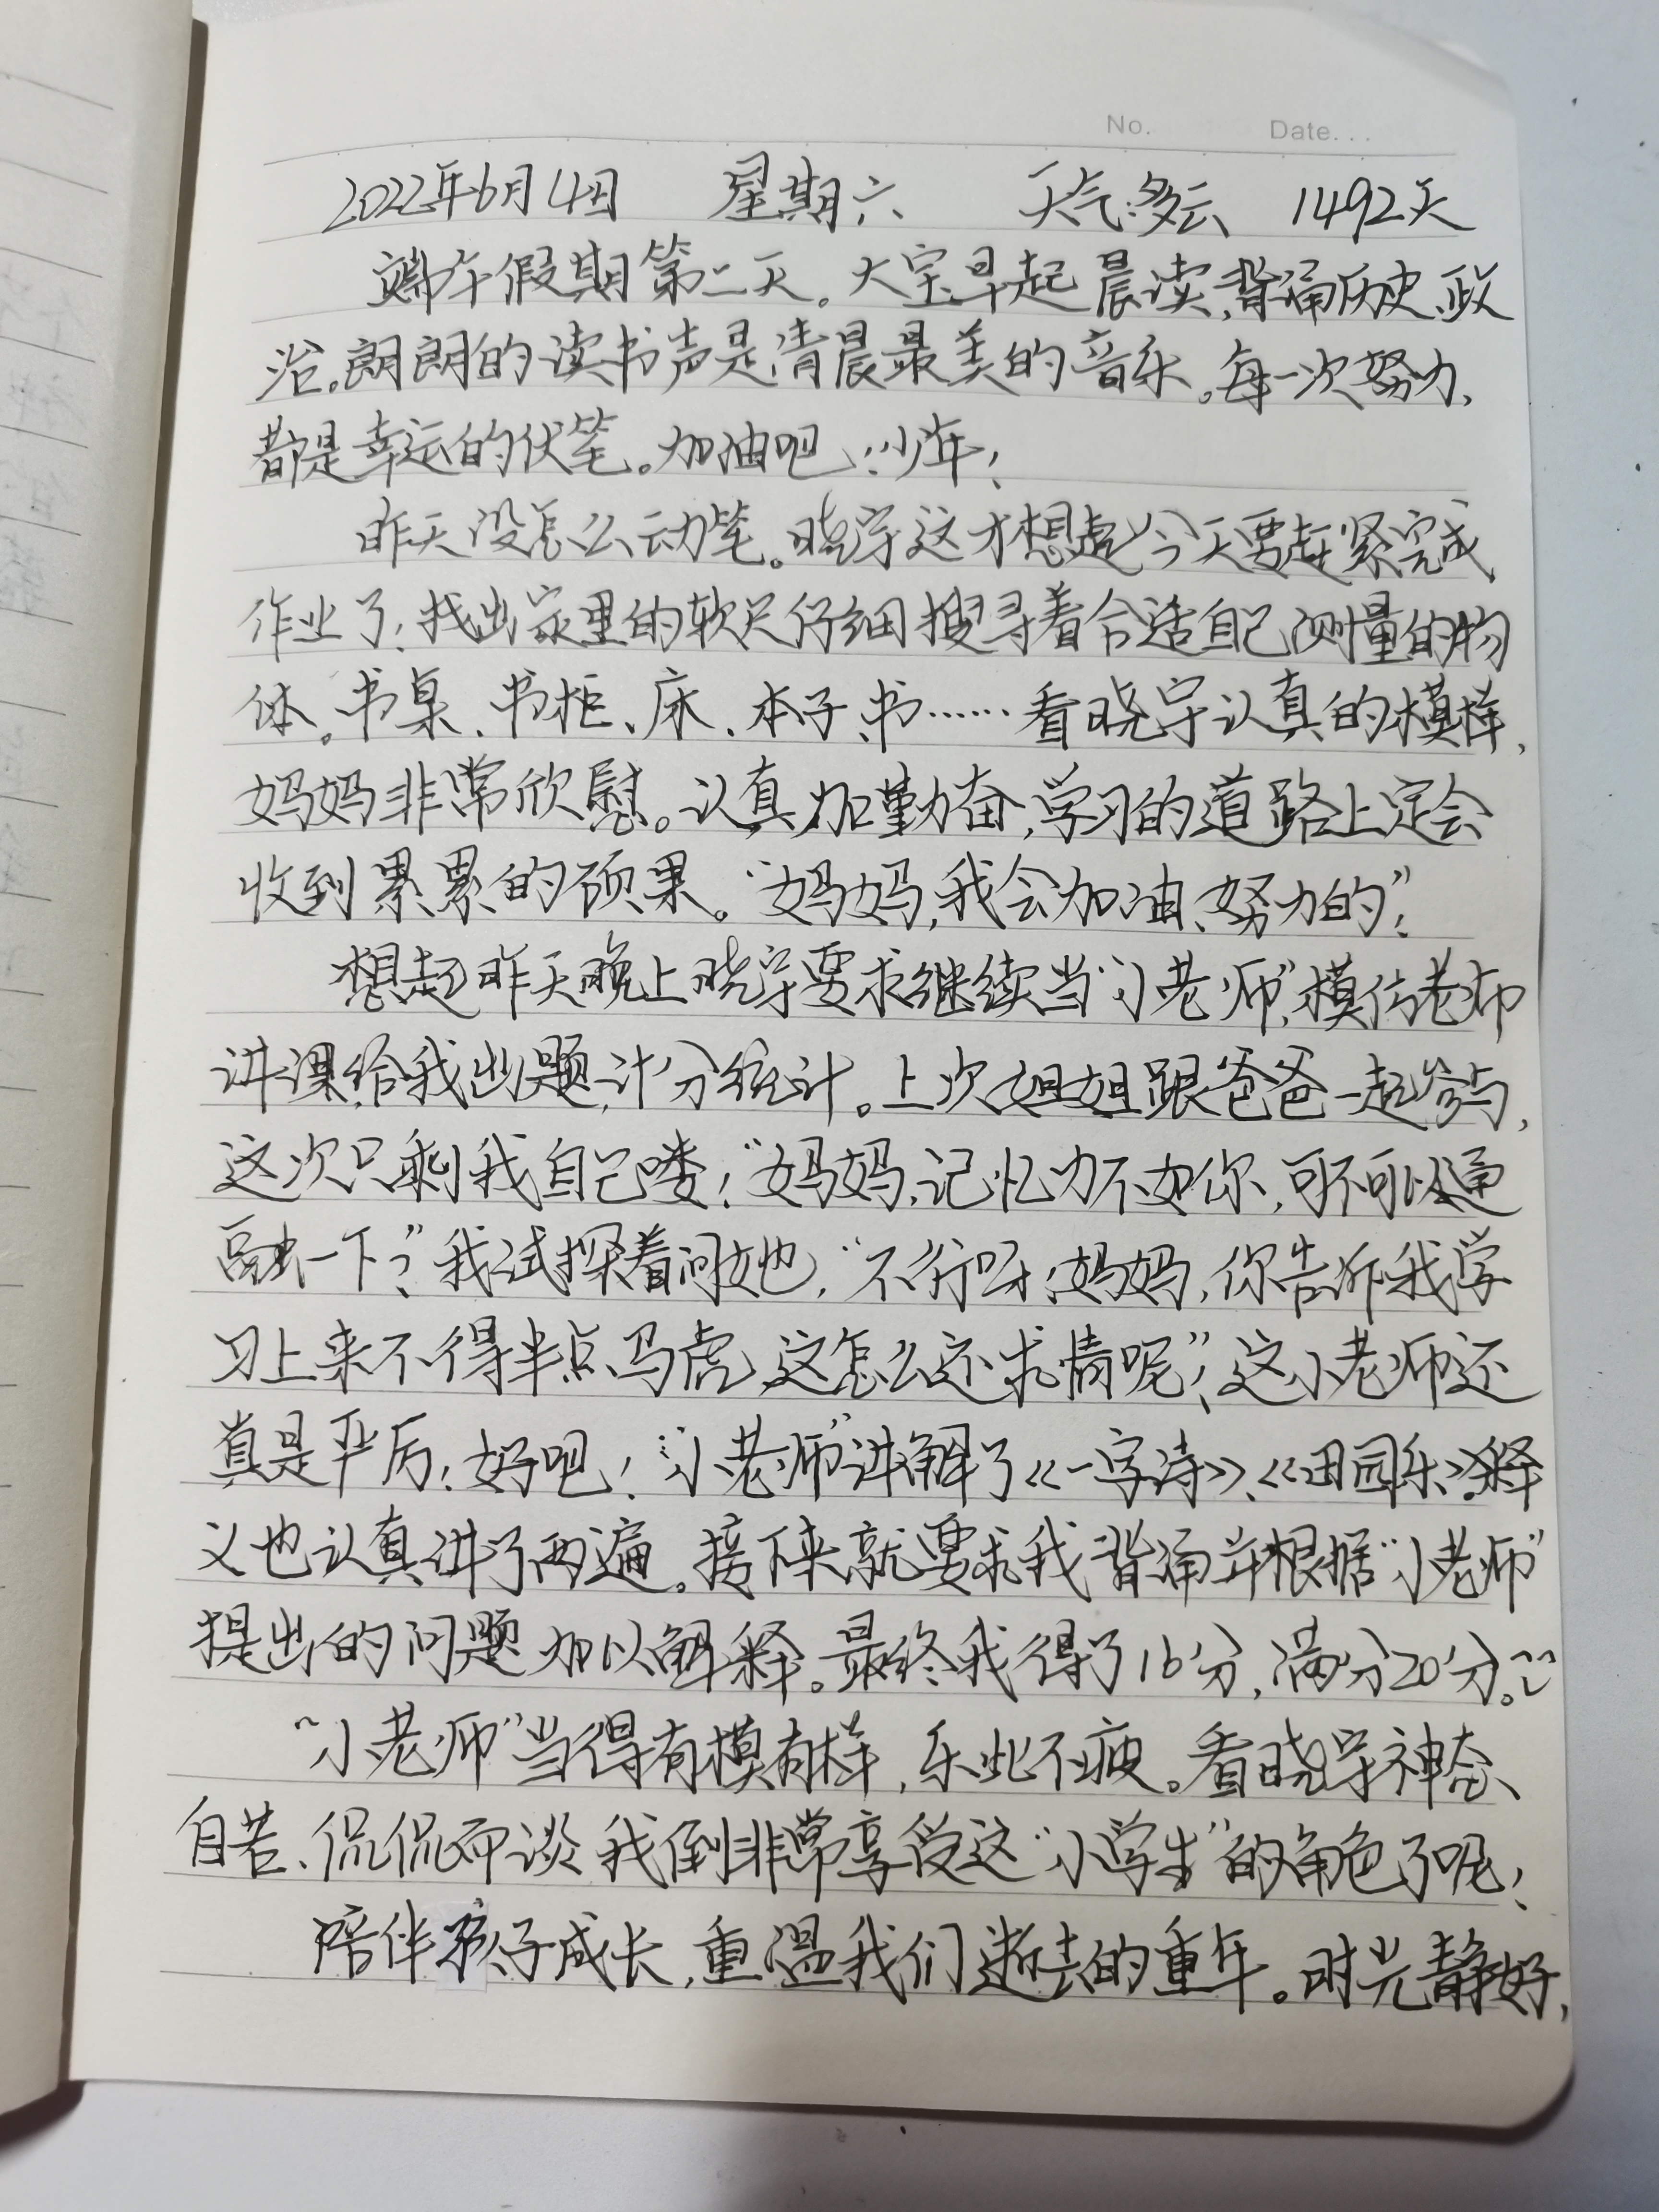 No.    Date...
2022年6月4日 星期六 天气:多云 1492天
端午假期第二天。大宝早起晨读,背诵历史、政
治。朗朗的读书声是清晨最美的音乐。每一次努力,
都是幸运的伏笔。加油吧!少年!
昨天没怎么动笔。晓宇这才想起今天要赶紧完成
作业了!找出家里的软尺仔细搜寻着合适自己测量的物
体。书桌、书柜、床、本子、书……看晓宇认真的模样,
妈妈非常欣慰。认真加勤奋,学习的道路上定会
收到累累的硕果。“妈妈,我会加油、努力的”!
想起昨天晚上晓宇要求继续当“小老师”,模仿老师
讲课,给我出题,计分统计。上次姐姐跟爸爸一起参与,
这次只剩我自己喽!“妈妈,记忆力不如你,可不可以通
融一下?”我试探着问她,“不行呀!妈妈,你告诉我学
习上来不得半点马虎,这怎么还求情呢”!这小老师还
真是严厉!好吧!“小老师”讲解了《一字诗》、《田园乐》,释
义也认真讲了两遍。接下来就要求我背诵并根据“小老师”
提出的问题加以解释。最终我得了16分,满分20分。
“小老师”当得有模有样,乐此不疲。看晓宇神态
自若、侃侃而谈,我倒非常享受这“小学生”的角色了呢!
陪伴孩子成长,重温我们逝去的童年。时光静好,